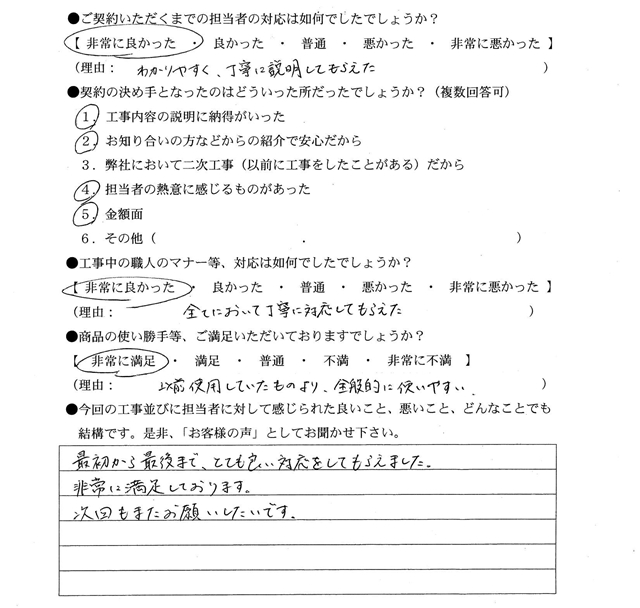 ●ご契約いただくまでの担当者の対応は如何でしたでしょうか？
【 非常に良かった ・ 良かった ・ 普通 ・ 悪かった ・ 非常に悪かった 】
（理由： わかりやすく、丁寧に説明してもらえた ）
●契約の決め手となったのはどういった所だったでしょうか？（複数回答可）
1．工事内容の説明に納得がいった
2．お知り合いの方などからの紹介で安心だから
3．弊社において二次工事（以前に工事をしたことがある）だから
4．担当者の熱意に感じるものがあった
5．金額面
6．その他（ ）
●工事中の職人のマナー等、対応は如何でしたでしょうか？
【 非常に良かった ・ 良かった ・ 普通 ・ 悪かった ・ 非常に悪かった 】
（理由： 全てにおいて丁寧に対応してもらえた ）
●商品の使い勝手等、ご満足いただいておりますでしょうか？
【 非常に満足 ・ 満足 ・ 普通 ・ 不満 ・ 非常に不満 】
（理由： 以前使用していたものより、全般的に使いやすい。 ）
●今回の工事並びに担当者に対して感じられた良いこと、悪いこと、どんなことでも
結構です。是非、「お客様の声」としてお聞かせ下さい。
最初から最後まで、とても良い対応をしてもらえました。
非常に満足しております。
次回もまたお願いしたいです。